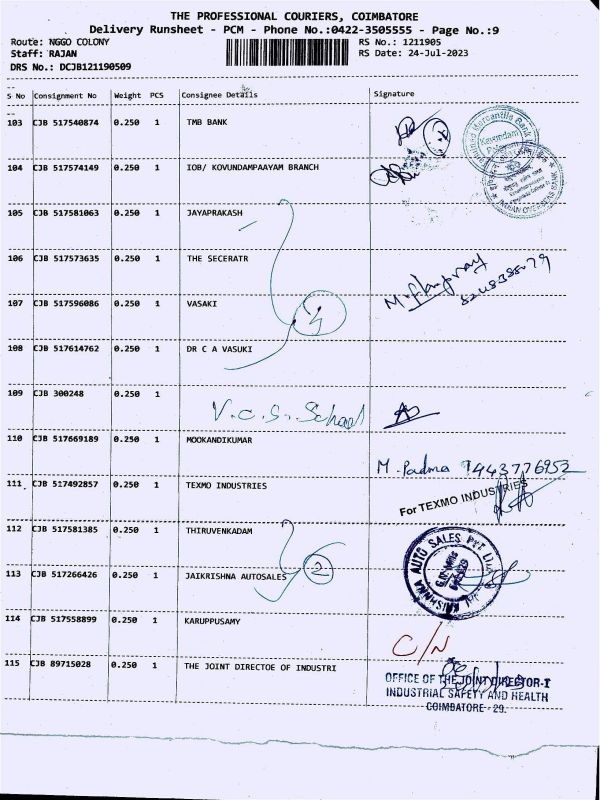 THE PROFESSIONAL COURIERS, COIMBATORE
Delivery Runsheet - PCM - Phone No.:0422-3505555 - Page No.:9
Route: NGGO COLONY RS No.: 1211905
Staff: RAJAN RS Date: 24-Jul-2023
DRS No.: DCJB121190509
S No Consignment No Weight PCS Consignee Details Signature
103 CJB 517540874 0.250 1 TMB BANK
104 CJB 517574149 0.250 1 IOB/ KOVUNDAMPAAYAM BRANCH
105 CJB 517581063 0.250 1 JAYAPRAKASH
106 CJB 517573635 0.250 1 THE SECERATR
107 CJB 517596086 0.250 1 VASAKI
4
108 CJB 517614762 0.250 1 DR C A VASUKI
109 CJB 300248 0.250 1
V.C.S. School
110 CJB 517669189 0.250 1 MOOKANDIKUMAR
M. Padma 9443776952
111 CJB 517492857 0.250 1 TEXMO INDUSTRIES
For TEXMO INDUSTRIES
112 CJB 517581385 0.250 1 THIRUVENKADAM
2
113 CJB 517266426 0.250 1 JAIKRISHNA AUTOSALES
AUTO SALES PVT
114 CJB 517558899 0.250 1 KARUPPUSAMY
C/N
115 CJB 89715028 0.250 1 THE JOINT DIRECTOE OF INDUSTRI
OFFICE OF THE JOINT DIRECTOR-I
INDUSTRIAL SAFETY AND HEALTH
COIMBATORE - 29.